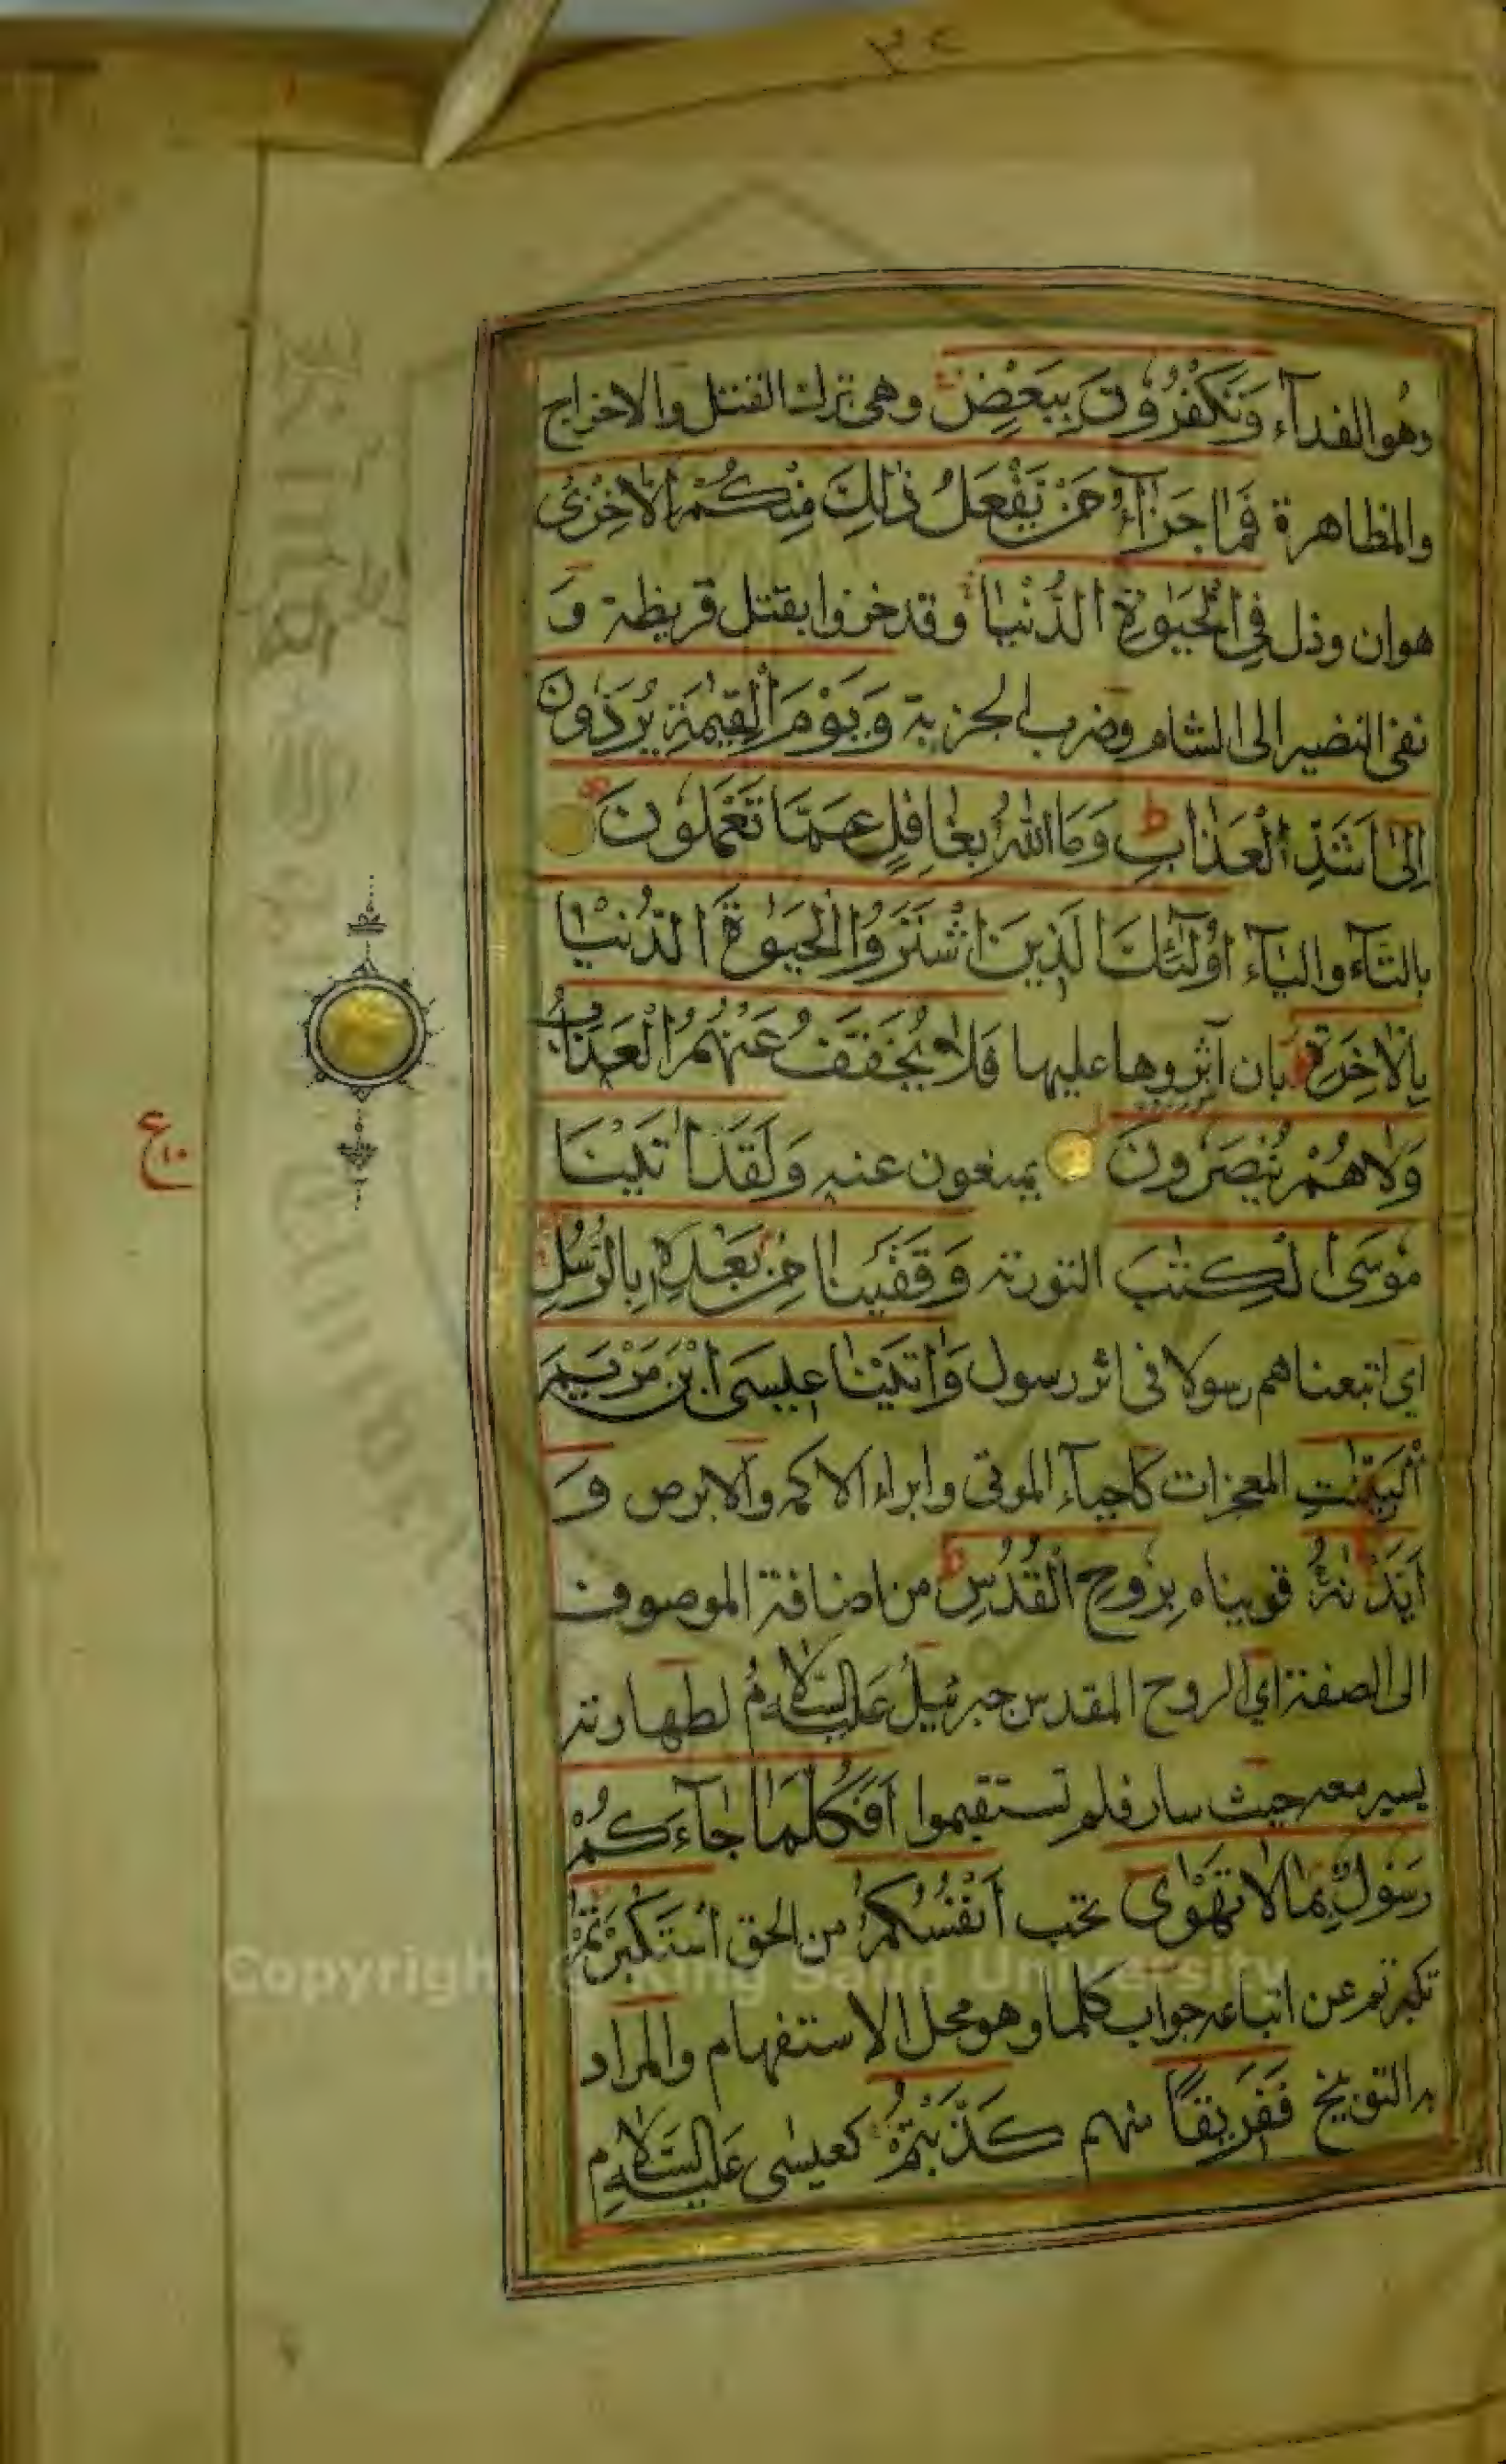 ٣٢
وهو الفدآء وَتَكْفُرُونَ بِبَعْضٍ وهى ترك القتل والاخراج
والمظاهرة فَمَا جَزَآءُ مَنْ يَفْعَلُ ذٰلِكَ مِنْكُمْ اِلَّا خِزْىٌ
هوان وذل فِى الْحَيٰوةِ الدُّنْيَا وقد خزوا بقتل قريظة و
نفى النضير الى الشام وضرب الجزية وَيَوْمَ الْقِيٰمَةِ يُرَدُّونَ
اِلٰى اَشَدِّ الْعَذَابِ ط وَمَا اللّٰهُ بِغَافِلٍ عَمَّا تَعْمَلُونَ
بالتآء واليآء اُولٰٓئِكَ الَّذِينَ اشْتَرَوُا الْحَيٰوةَ الدُّنْيَا
بِالْاٰخِرَةِ بان آثروها عليها فَلَا يُخَفَّفُ عَنْهُمُ الْعَذَابُ
وَلَا هُمْ يُنْصَرُونَ يمنعون عنه وَلَقَدْ اٰتَيْنَا
مُوسَى الْكِتٰبَ التورىة وَقَفَّيْنَا مِنْ بَعْدِهٖ بِالرُّسُلِ
اى اتبعناهم رسولا فى اثر رسول وَاٰتَيْنَا عِيسَى ابْنَ مَرْيَمَ
الْبَيِّنٰتِ المعجزات كاحيآء الموتى وابراء الاكمه والابرص وَ
اَيَّدْنٰهُ قويناه بِرُوحِ الْقُدُسِ ط من اضافة الموصوف
الى الصفة اي الروح المقدس جبرئيل عليه السلام لطهارته
يسير معه حيث سار فلم تستقيموا اَفَكُلَّمَا جَآءَكُمْ
رَسُولٌ بِمَا لَا تَهْوٰى تحب اَنْفُسُكُمُ من الحق اسْتَكْبَرْتُمْ
تكبرتم عن اتباعه جواب كلما وهو محل الاستفهام والمراد
به التوبيخ فَفَرِيقًا منهم كَذَّبْتُمْ كعيسى عليه السلام
ع ١٠
Copyright © King Saud University